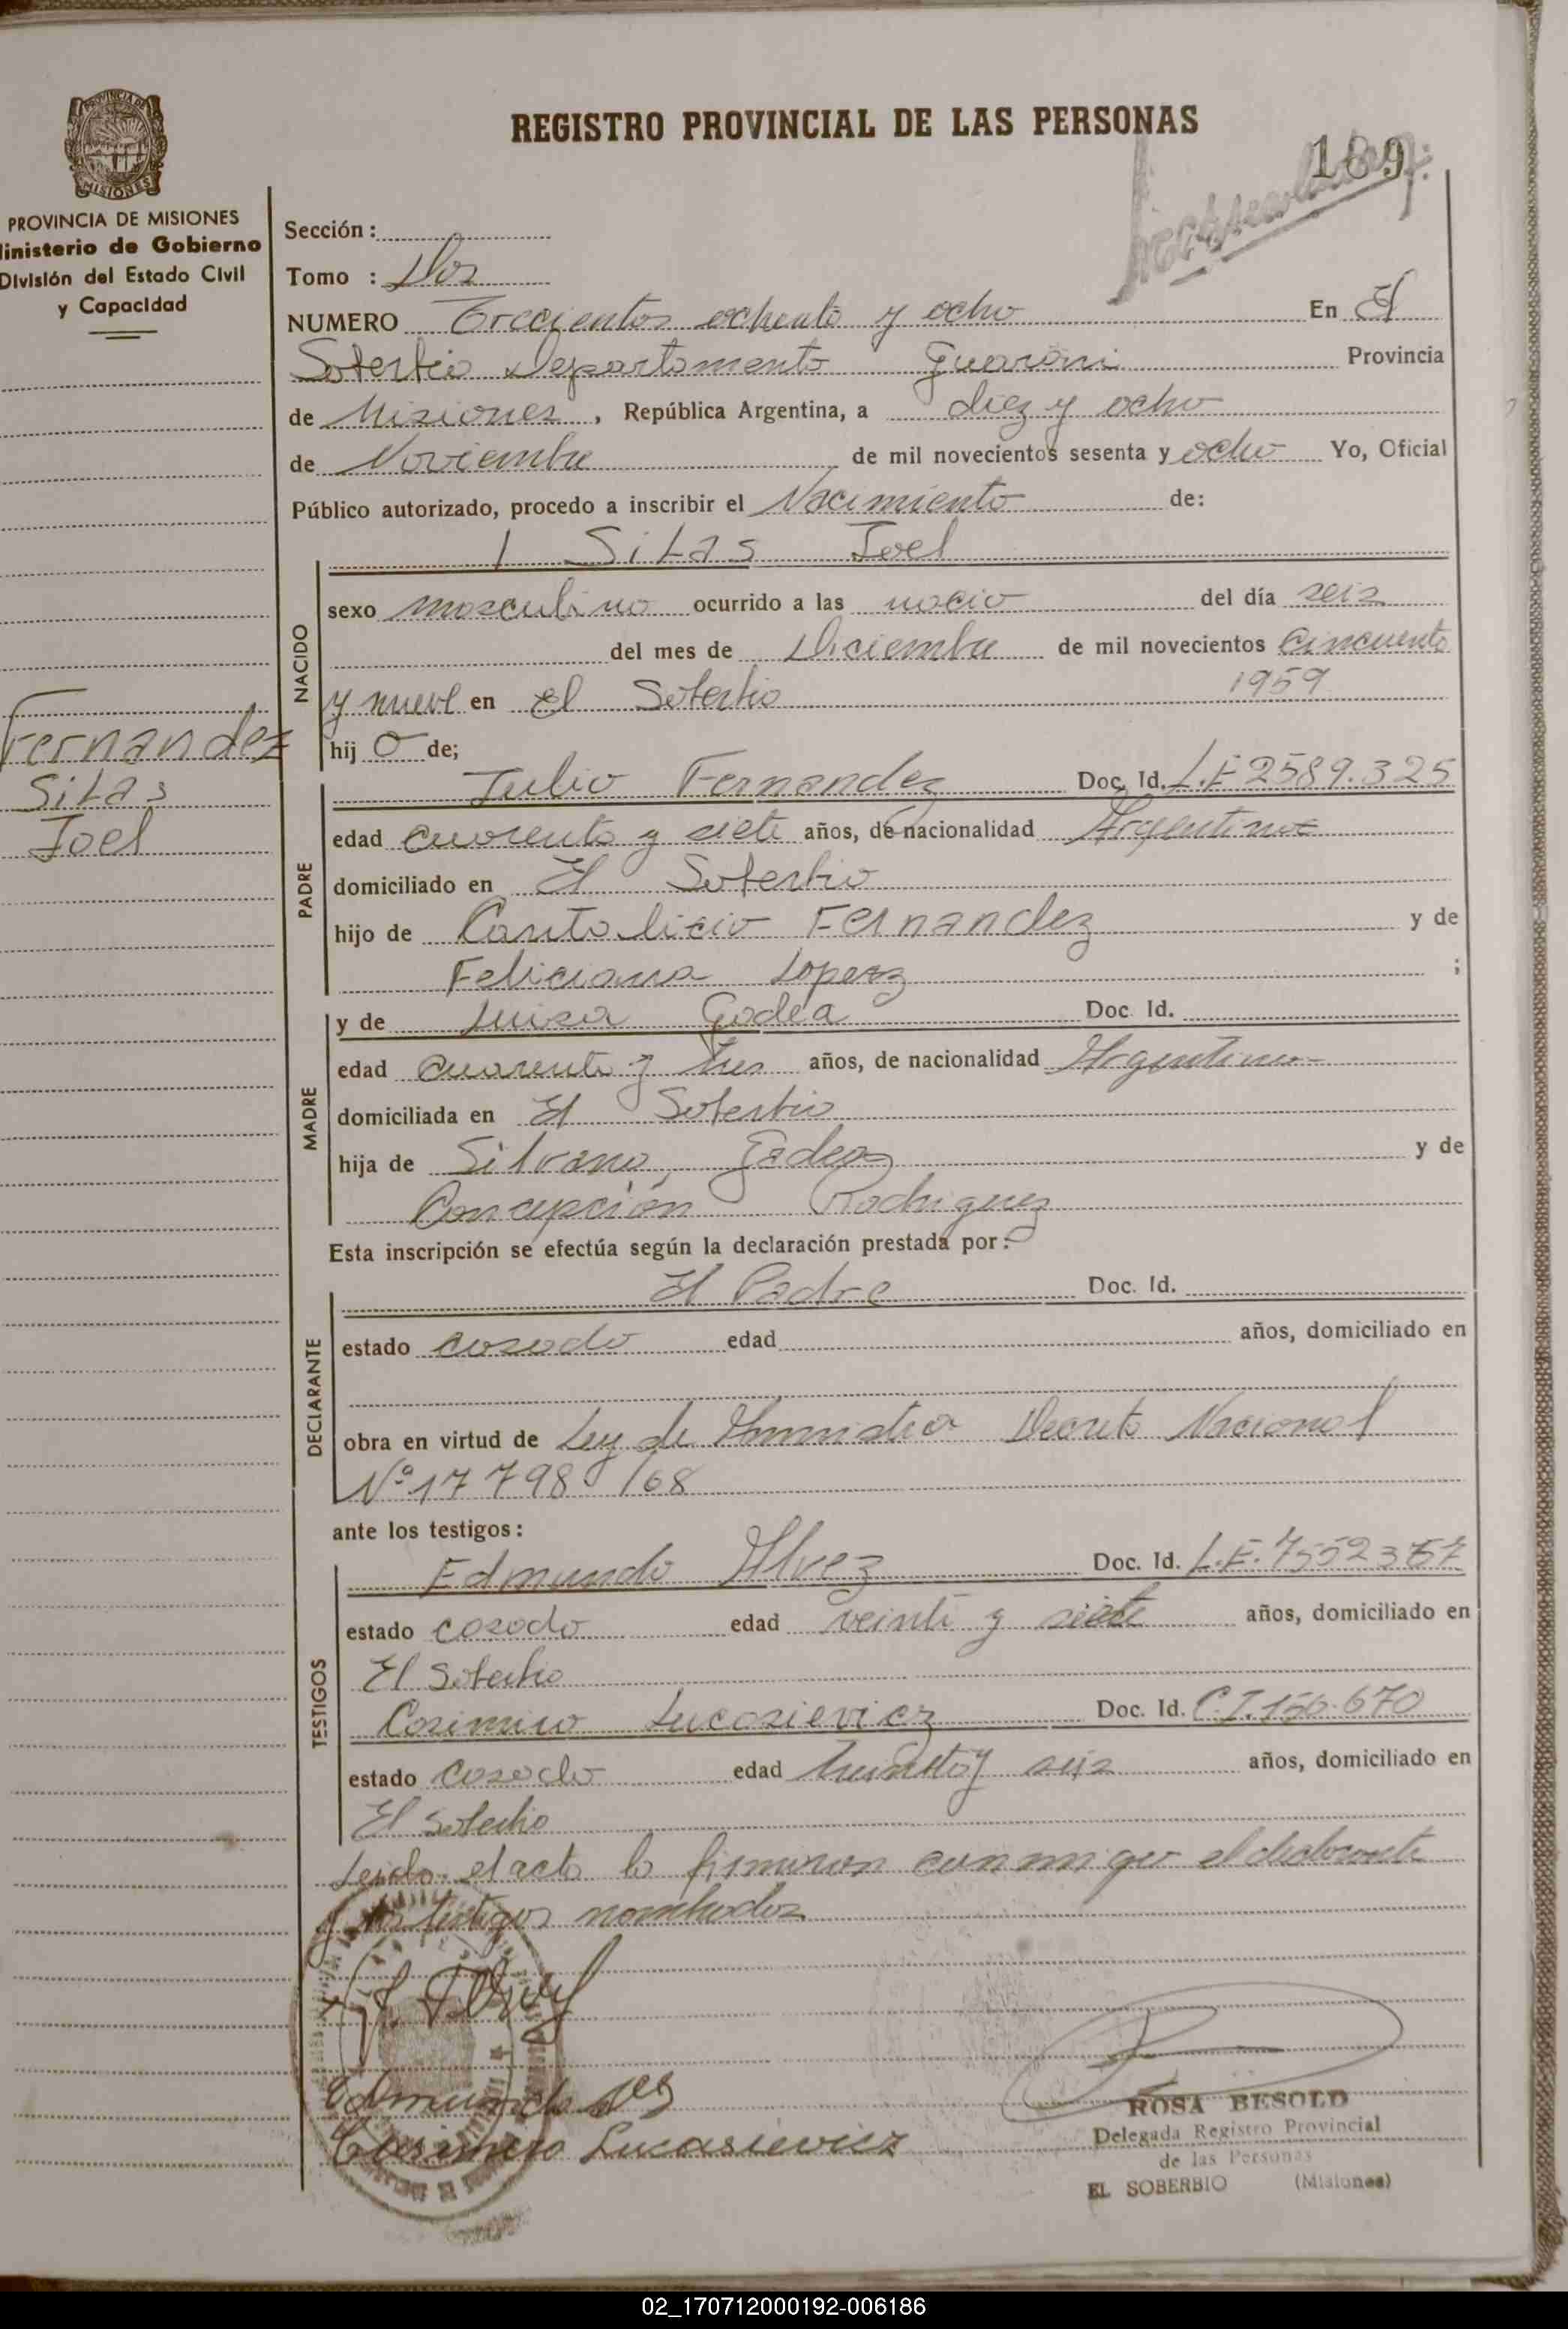 REGISTRO PROVINCIAL DE LAS PERSONAS
189
PROVINCIA DE MISIONES
PROVINCIA DE MISIONES
Ministerio de Gobierno
División del Estado Civil
y Capacidad
Sección :
Tomo : Dos
NUMERO Trecientos ochenta y ocho En El
Soberbio Departamento Guarani Provincia
de Misiones , República Argentina, a diez y ocho
de Noviembre de mil novecientos sesenta y ocho Yo, Oficial
Público autorizado, procedo a inscribir el Nacimiento de:
Silas Joel
NACIDO
sexo masculino ocurrido a las nacio del día seis
del mes de Diciembre de mil novecientos Cincuenta
1959
y nueve en el Soberbio
hij o de;
Fernandez
Silas
Joel
Julio Fernandez Doc. Id. L.E 2589.325
PADRE
edad cuarenta y siete años, de nacionalidad Argentina
domiciliado en El Soberbio
hijo de Cantalicio Fernandez y de
Feliciana Loperz ;
MADRE
y de Luisa Godea Doc. Id.
edad cuarenta y tres años, de nacionalidad Argentina
domiciliada en El Soberbio
hija de Silvano Godea y de
Concepción Rodriguez
Esta inscripción se efectúa según la declaración prestada por:
El Padre Doc. Id.
DECLARANTE
estado casado edad años, domiciliado en
obra en virtud de Ley de Amnistia Decreto Nacional
Nº 17798/68
ante los testigos:
Edmundo Alvez Doc. Id. L.E. 7552357
TESTIGOS
estado casado edad veinti y siete años, domiciliado en
El Soberbio
Casimiro Lucasievicz Doc. Id. C.I. 156.670
estado casado edad treinta y seis años, domiciliado en
El Soberbio
Leido el acta lo firmaron conmigo el declarante
y los testigos nombrados
Edmundo
Casimiro Lucasievicz
ROSA BESOLD
Delegada Registro Provincial
de las Personas
EL SOBERBIO (Misiones)
02_170712000192-006186